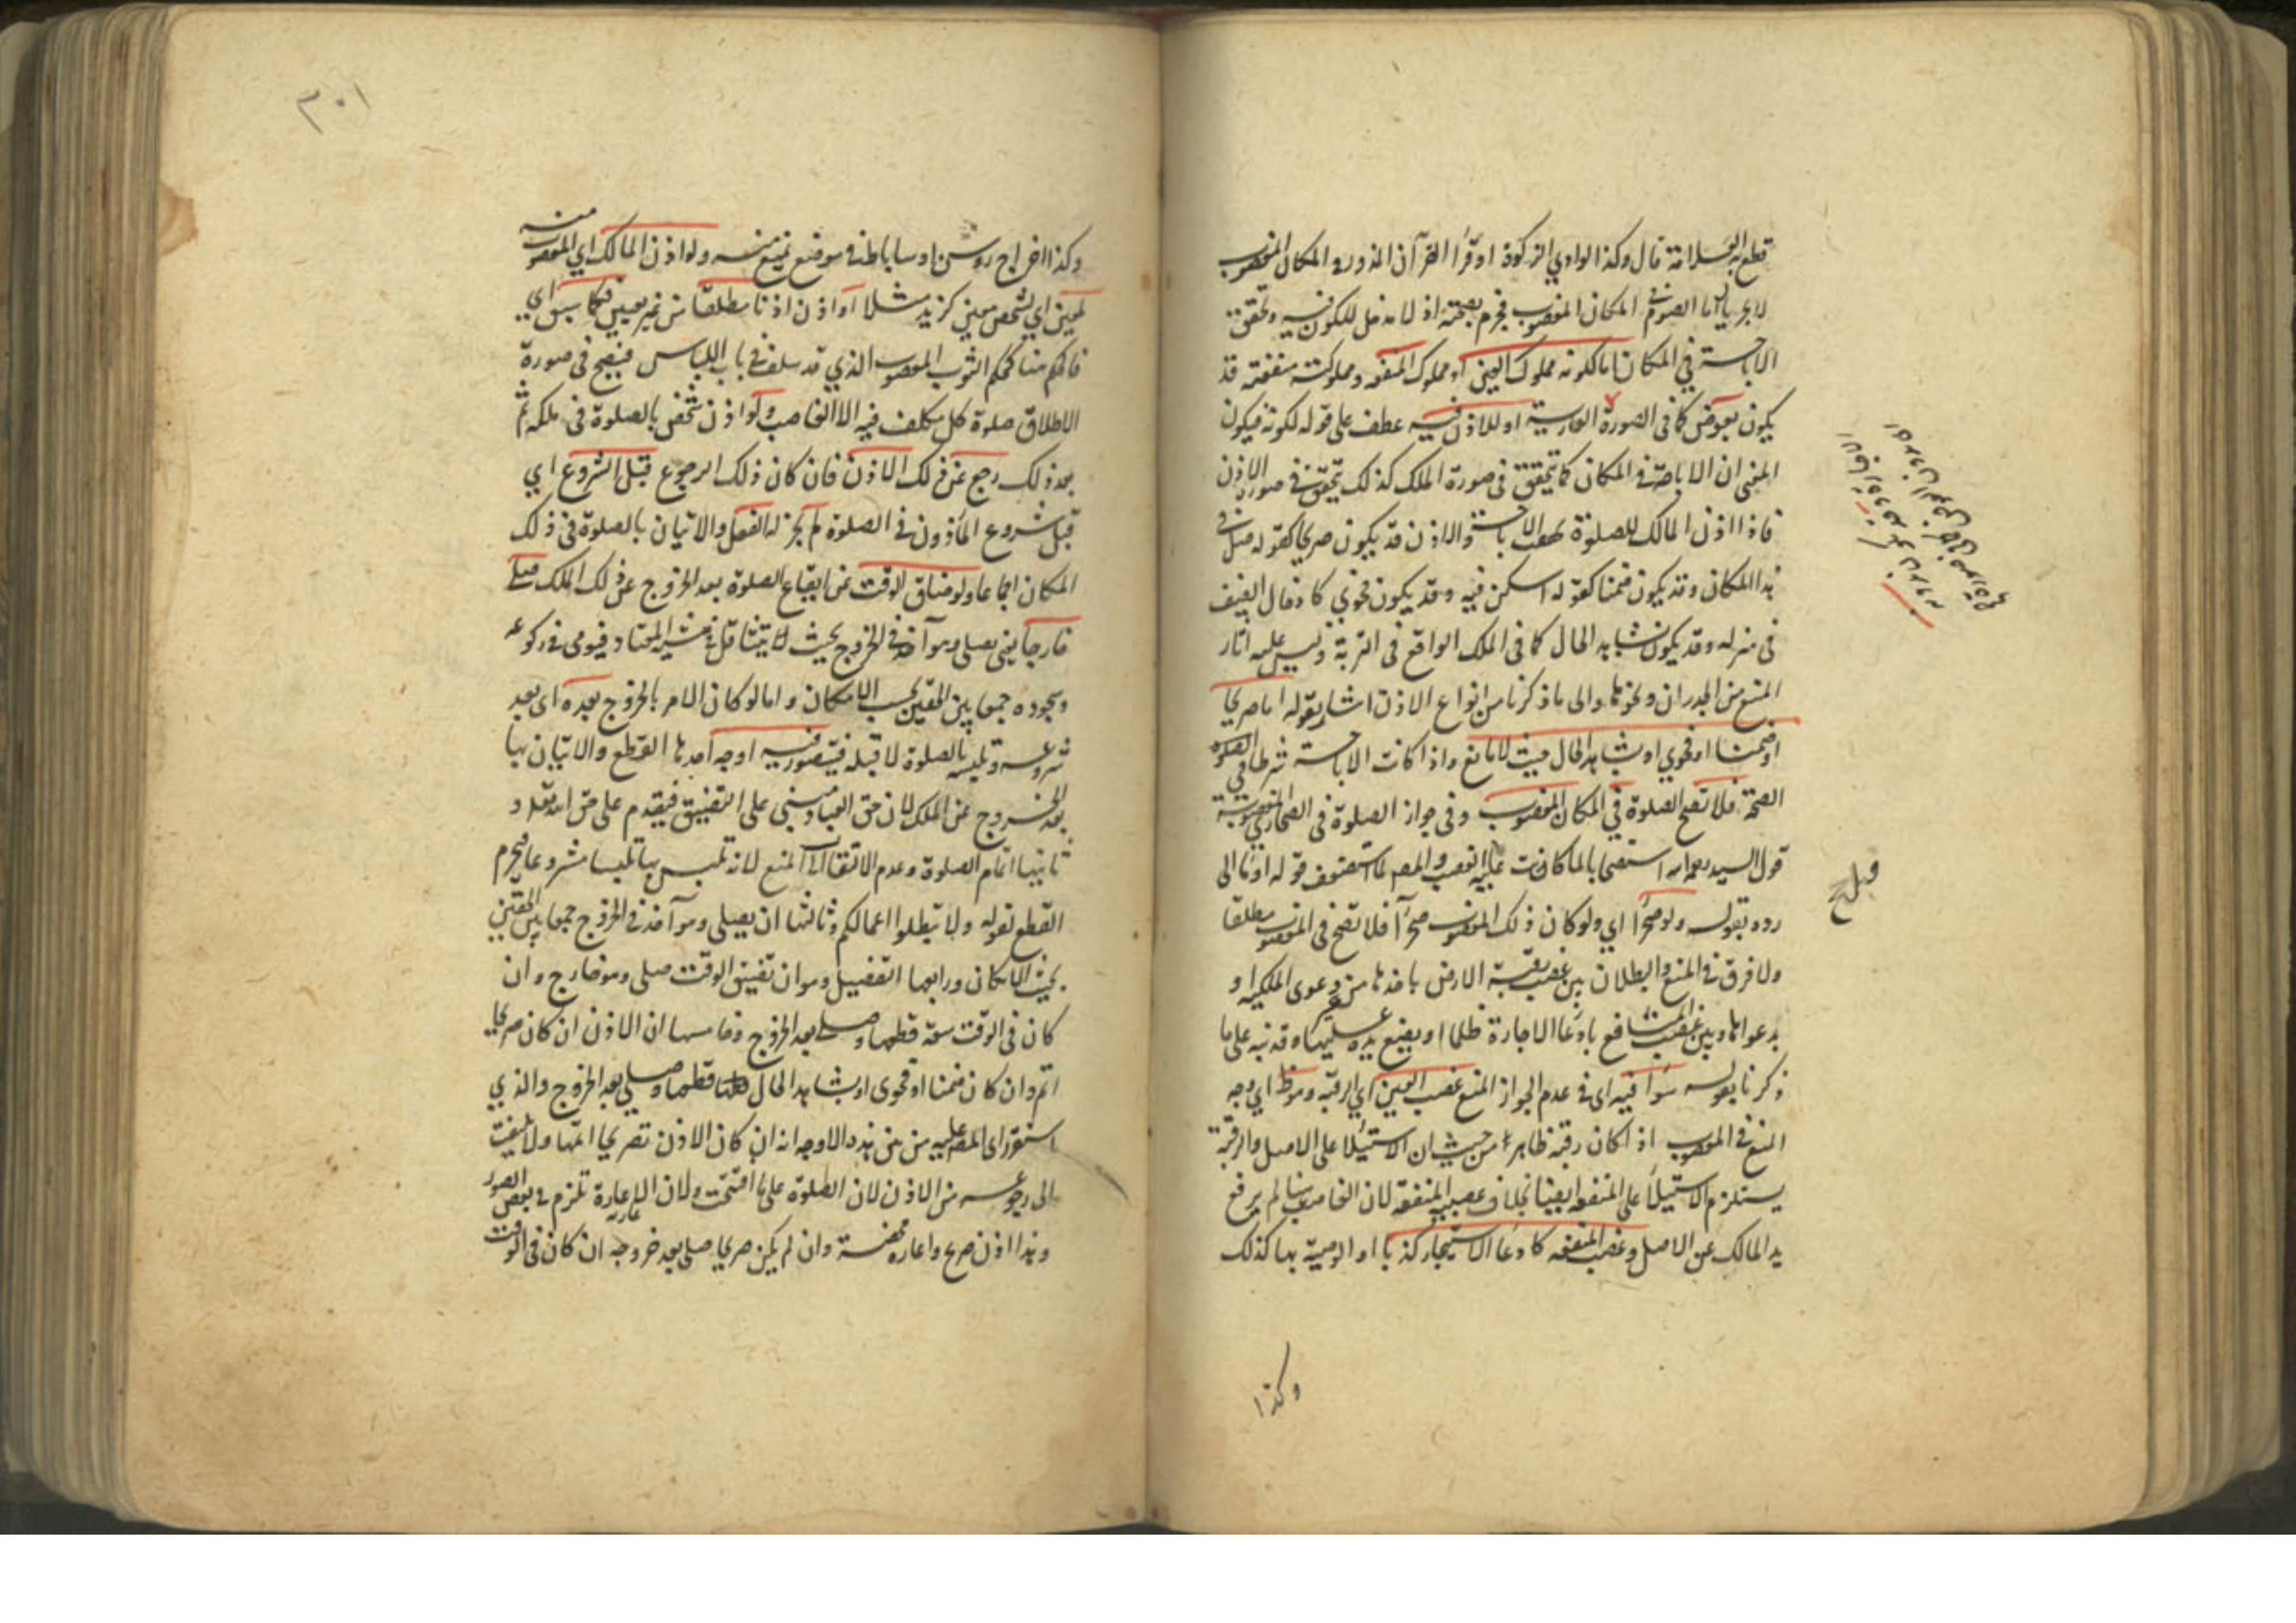 قطع به العلامة قال وكذا لو ادي الزكوة او قرأ القرآن المنذور في المكان المغصوب
لا يجزيه اما الصوم في المكان المغصوب فجزم بصحته اذ لا مدخل للكون فيه وتحقق
الاباحة في المكان اما لكونه مملوك العين او مملوك المنفعة ومملوكية منفعته قد
يكون بعوض كما في الصورة العارية او للاذن فيه عطف على قوله لكونه فيكون
المعنى ان الاباحة في المكان كما يتحقق في صورة الملك كذلك يتحقق في صورة الاذن
فاذا اذن المالك للصلوة حصلت الاباحة والاذن قد يكون صريحا كقوله صل في
هذا المكان وقد يكون ضمنا كقوله اسكن فيه وقد يكون فحوي كادخال الضيف
في منزله وقد يكون بشاهد الحال كما في الملك الواقع في التربة وليس عليه اثار
المنع من الجدران ونحوها والى ما ذكرنا من انواع الاذن اشار بقوله اما صريحا
او ضمنا او فحوي او بشاهد الحال حيث لا مانع واذا كانت الاباحة شرطا في
الصحة فلا تصح الصلوة في المكان المغصوب وفي جواز الصلوة في الصحاري المغصوبة
قول للسيد رحمه الله استصحابا لما كانت عليه قبل الغصب والمصر لما استضعف قوله اومأ الى
رده بقوله ولو صحرا اي ولو كان ذلك المغصوب صحرآ فلا تصح في المغصوب مطلقا
ولا فرق في المنع والبطلان بين غصب رقبة الارض باخذها من دعوى الملكية او
بدعواها وبين غصب المنافع بادعا الاجارة ظلما او بوضع يده عليها وقد نبه على ما
ذكرنا بقوله سوآ فيه اى في عدم الجواز المنع غصب العين اي الرقبة وهو ظ اي وجه
المنع في المغصوب اذا كان رقبة ظاهر من حيث ان الاستيلا على الاصل والرقبة
يستلزم الاستيلا على المنفعة ايضا بخلاف غصب المنفعة لان الغاصب هنا لم يرفع
يد المالك عن الاصل وغصب المنفعة كادعا الاستيجار كذبا او الوصية بها كذلك
وكذا
٣٠١
وكذا اخراج روشن او ساباط في موضع يمنع منه ولو اذن المالك اي المغصوب منه
لمعين اي لشخص معين كزيد مثلا او اذن اذنا مطلقا من غير تعيين فكما سبق اي
فالحكم هنا كحكم الثوب المغصوب الذي قد سلف في باب اللباس فيصح في صورة
الاطلاق صلوة كل مكلف فيه الا الغاصب ولو اذن شخص بالصلوة في ملكه ثم
بعد ذلك رجع عن ذلك الاذن فان كان ذلك الرجوع قبل الشروع اي
قبل شروع المأذون في الصلوة لم يجز له الفعل والاتيان بالصلوة في ذلك
المكان اجماعا ولو ضاق الوقت عن ايقاع الصلوة بعد الخروج عن ذلك الملك صلى
خارجا يعني يصلى وهو آخذ في الخروج بحيث لا يتثاقل في مشيه المعتاد فيومى في ركوعه
وسجوده جمعا بين الحقين بحسب الامكان واما لو كان الامر بالخروج بعده اى بعد
شروعه وتلبسه بالصلوة لا قبله فيتصور فيه اوجه احدها القطع والاتيان بها
بعد الخروج عن الملك لان حق العباد مبنى على التضييق فيقدم على حق الله تعالى و
ثانيها اتمام الصلوة وعدم الالتفات الى المنع لانه تلبس بها تلبسا مشروعا فيحرم
القطع لقوله ولا تبطلوا اعمالكم وثالثها ان يصلى وهو آخذ في الخروج جمعا بين الحقين
بحيث الامكان ورابعها التفصيل وهو ان تضييق الوقت صلى وهو خارج وان
كان في الوقت سعة قطعها وصلى بعد الخروج وخامسها ان الاذن ان كان صريحا
اتم وان كان ضمنا او فحوى او بشاهد الحال قطعها وصلى بعد الخروج والذي
استقر راى المصر عليه من بين هذه الاوجه انه ان كان الاذن تصريحا اتمها ولا يلتفت
الى رجوعه من الاذن لان الصلوة على ما افتتحت ولان الاعارة تلزم في بعض الصور
وهذا اذن صريح واعارة محضة وان لم يكن صريحا صلى بعد خروجه ان كان في الوقت